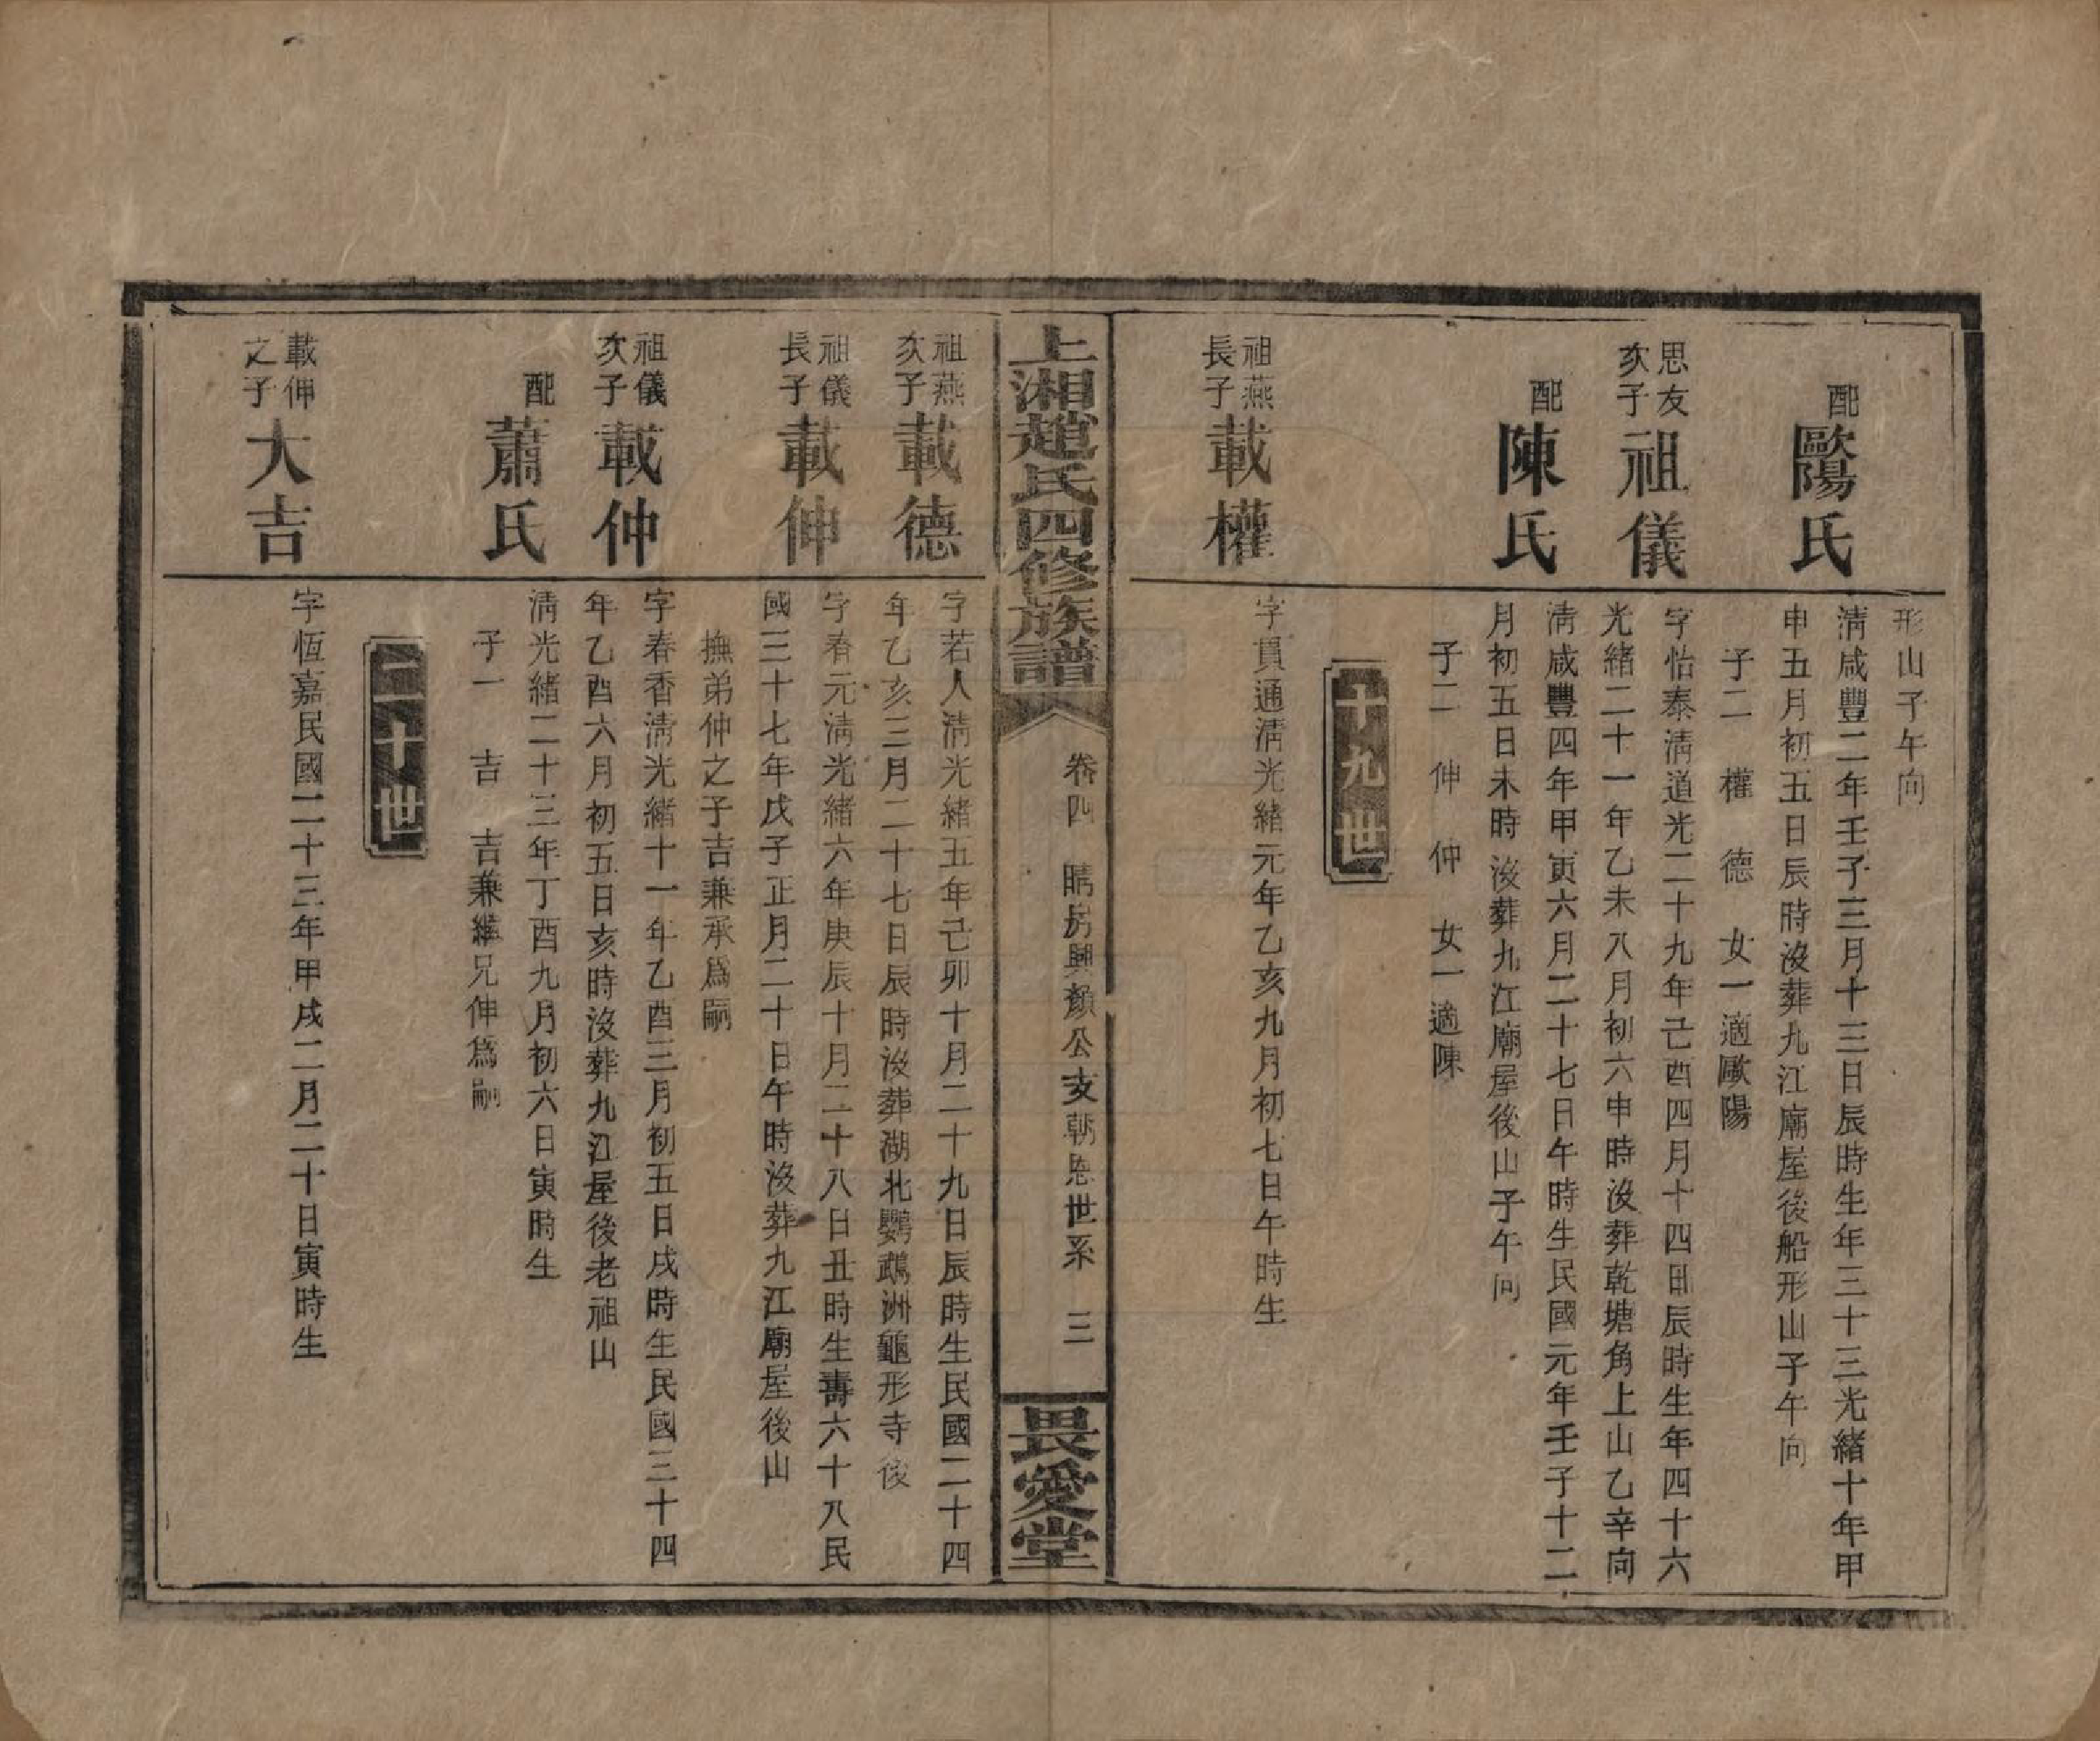 形山子午向
配
歐陽氏
清咸豐二年壬子三月十三日辰時生年三十三光緒十年甲
申五月初五日辰時沒葬九江廟屋後船形山子午向
子二　權　德　女一適歐陽
思友
次子
祖儀
字怡泰清道光二十九年己酉四月十四日辰時生年四十六
光緒二十一年乙未八月初六申時沒葬乾塘角上山乙辛向
配
陳氏
清咸豐四年甲寅六月二十七日午時生民國元年壬子十二
月初五日未時沒葬九江廟屋後山子午向
子二　伸　仲　女一適陳
十九世
祖燕
長子
載權
字貫通清光緒元年乙亥九月初七日午時生
上湘趙氏四修族譜
卷四　睛房興顏公支朝恩世系　三
畏愛堂
祖燕
次子
載德
字若人清光緒五年己卯十月二十九日辰時生民國二十四
年乙亥三月二十七日辰時沒葬湖北鸚鵡洲龜形寺後
祖儀
長子
載伸
字春元清光緒六年庚辰十月二十八日丑時生壽六十八民
國三十七年戊子正月二十日午時沒葬九江廟屋後山
撫弟仲之子吉兼承為嗣
祖儀
次子
載仲
字春香清光緒十一年乙酉三月初五日戌時生民國三十四
年乙酉六月初五日亥時沒葬九江屋後老祖山
配
蕭氏
清光緒二十三年丁酉九月初六日寅時生
子一　吉　吉兼繼兄伸為嗣
二十世
載伸
之子
大吉
字恆嘉民國二十三年甲戌二月二十日寅時生